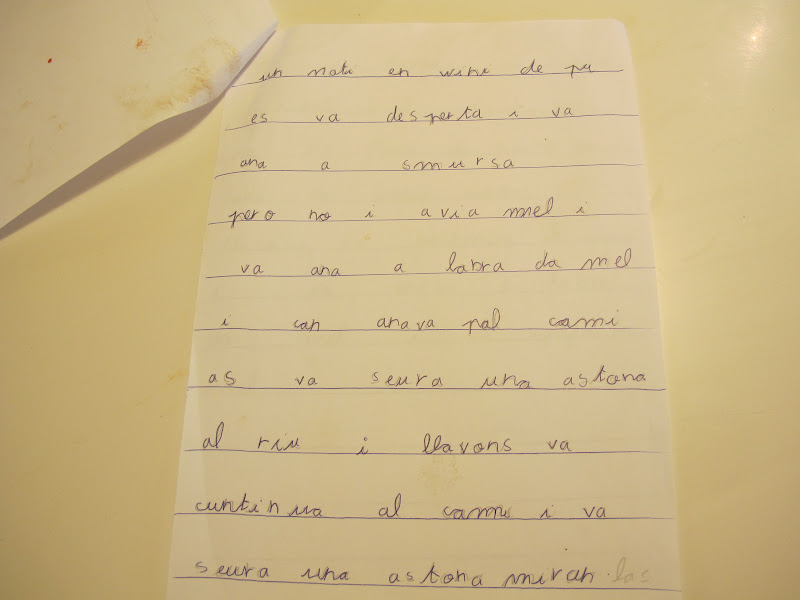 un mati en wini de pu
es va desperta i va
ana a smursa
pero no i avia mel i
va ana a labra da mel
i can anava pal cami
as va seura una astona
al riu i llavons va
cuntinua al cami i va
seura una astona miran las